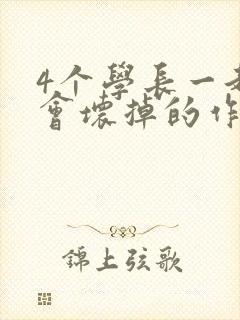 4个學長一
會壞掉的作
錦上弦歌